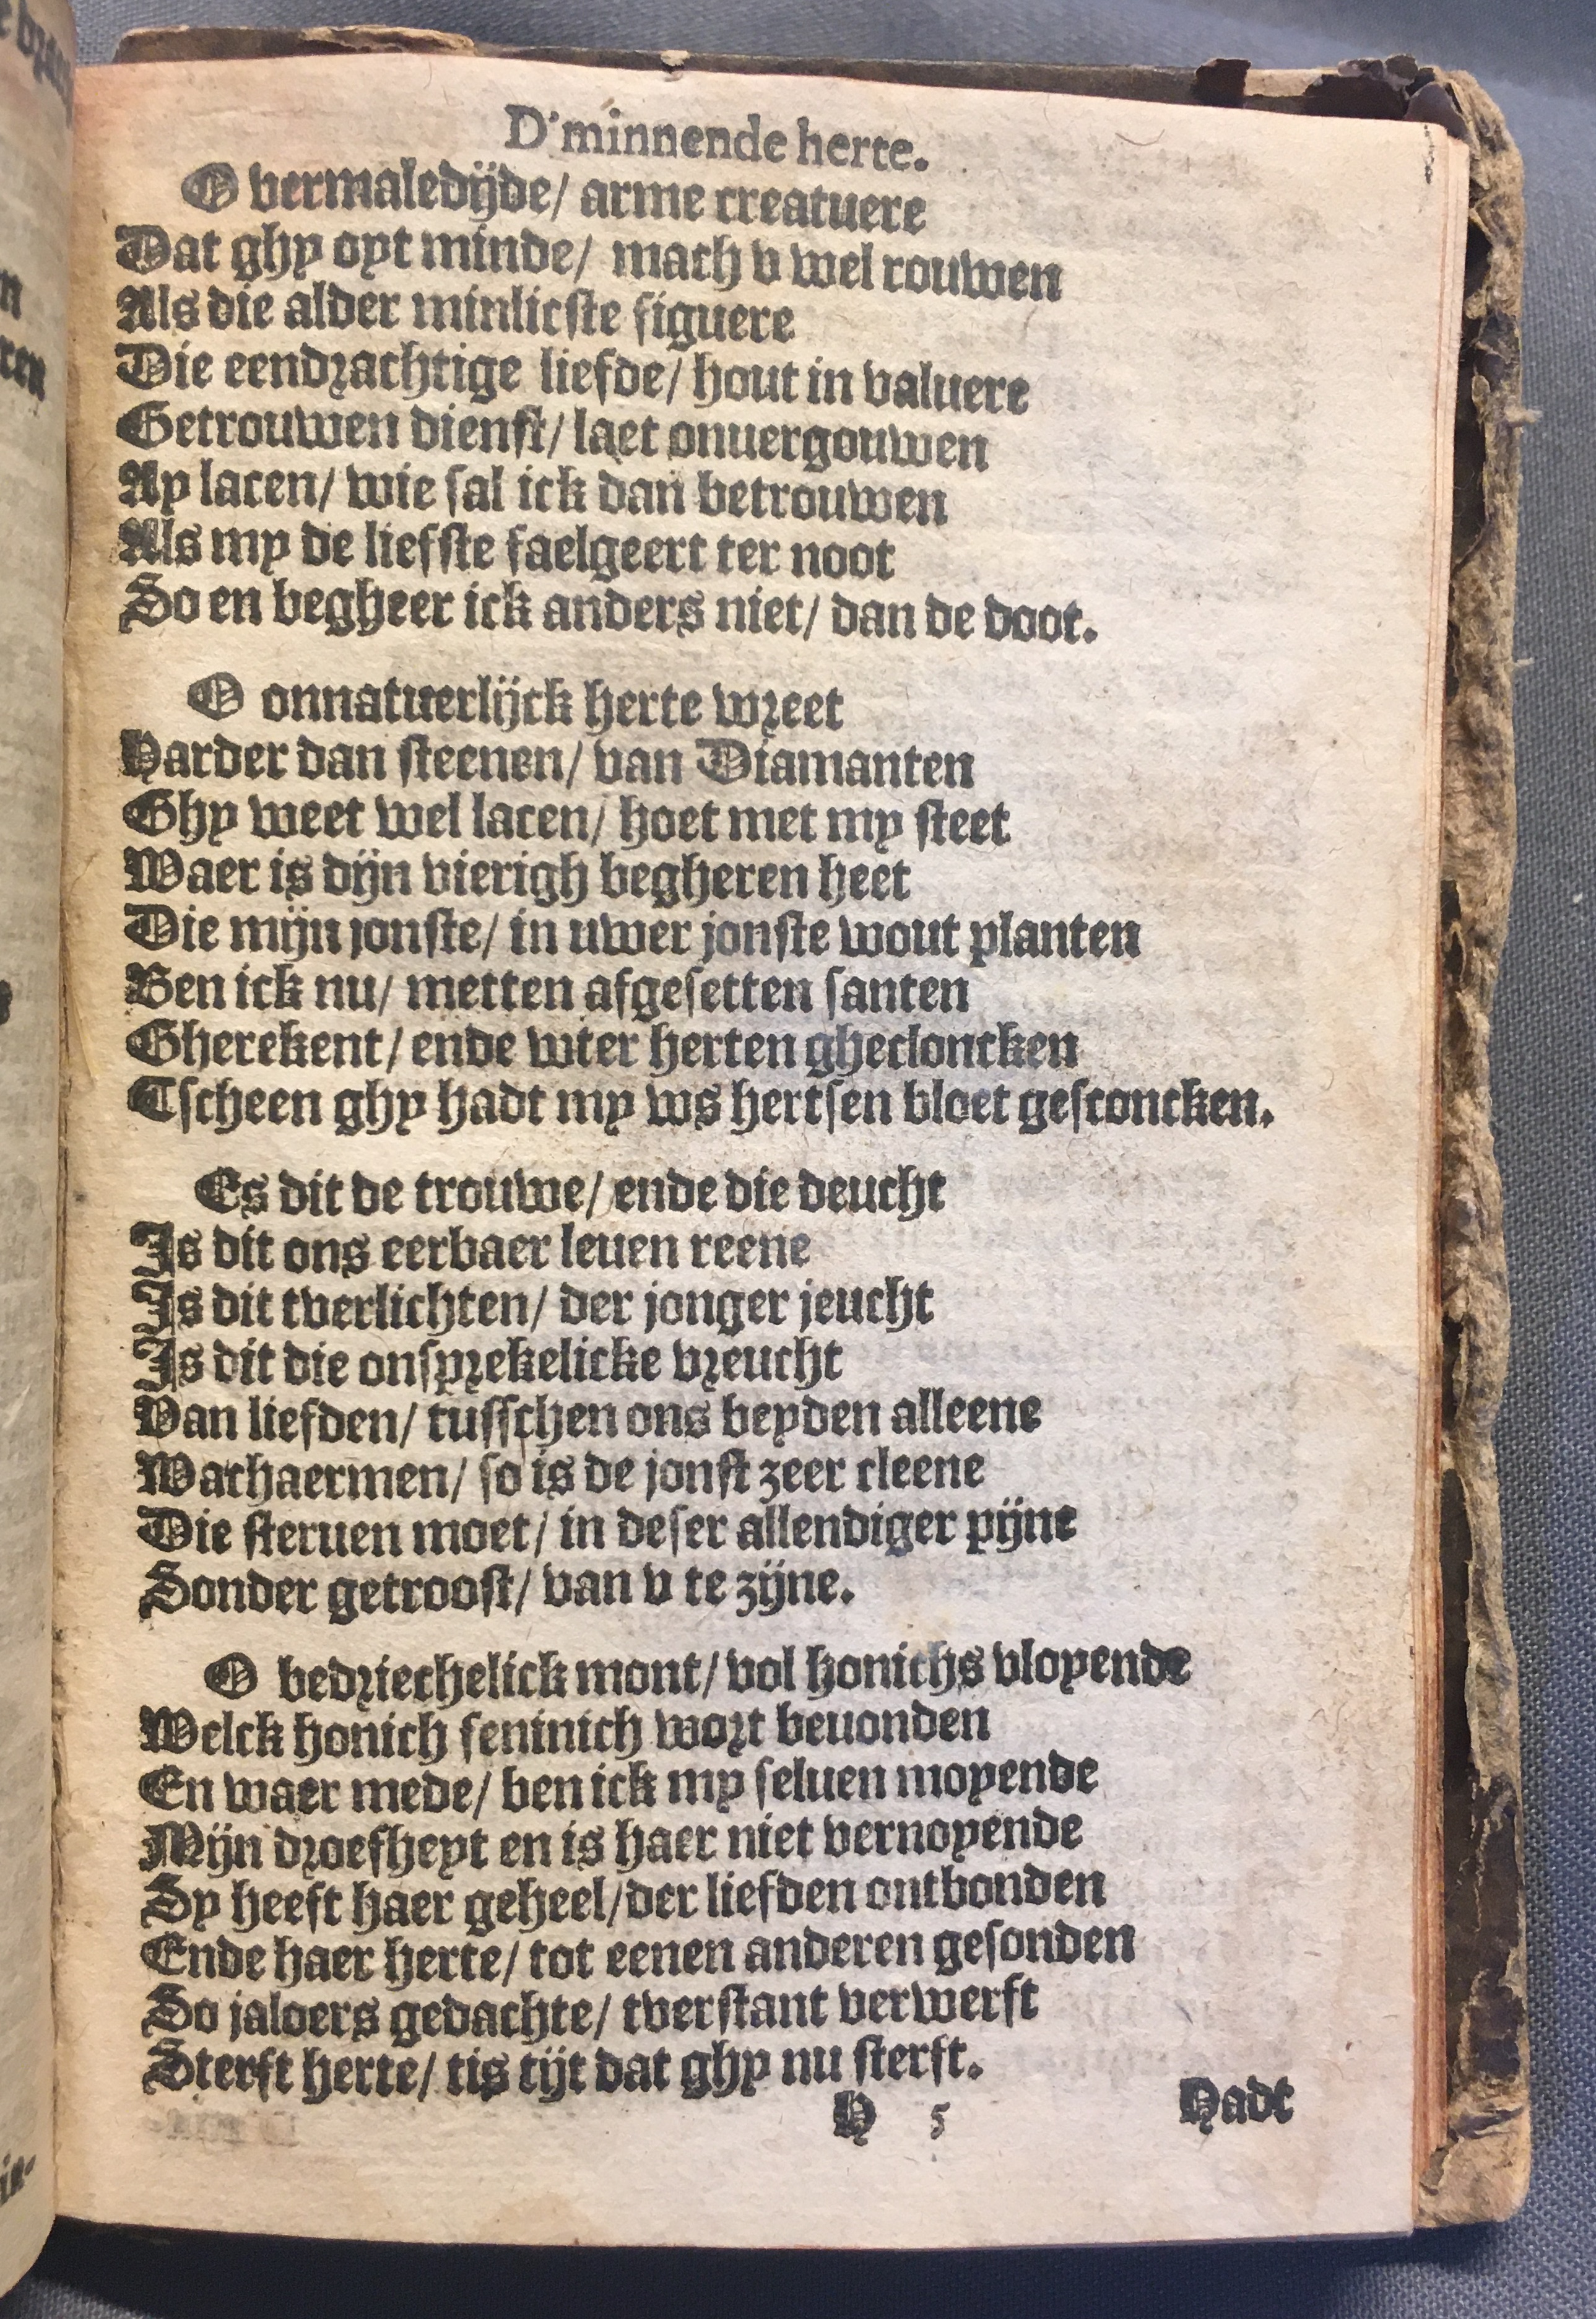 D'minnende herte.
O vermaledijde/ arme creatuere
Dat ghy oyt minde/ mach v wel rouwen
Als die alder minlicste figuere
Die eendrachtige liefde/ hout in valuere
Getrouwen dienst/ laet onuergouwen
Ay lacen/ wie sal ick dan betrouwen
Als my de liefste faelgeert ter noot
So en begheer ick anders niet/ dan de doot.
O onnatuerlijck herte wreet
Harder dan steenen/ van Diamanten
Ghy weet wel lacen/ hoet met my steet
Waer is dijn vierigh begheren heet
Die mijn jonste/ in uwer jonste wout planten
Ben ick nu/ metten afgesetten santen
Gherekent/ ende wter herten ghecloncken
Tscheen ghy hadt my ws hertsen bloet gesconcken.
Es dit de trouwe/ ende die deucht
Is dit ons eerbaer leuen reene
Is dit tverlichten/ der jonger jeucht
Is dit die onsprekelicke vreucht
Van liefden/ tusschen ons beyden alleene
Wachaermen/ so is de jonst zeer cleene
Die steruen moet/ in deser allendiger pijne
Sonder getroost/ van v te zijne.
O bedriechelick mont/ vol honichs vloyende
Welck honich feninich wort beuonden
En waer mede/ ben ick my seluen moyende
Mijn droefheyt en is haer niet vernoyende
Sy heeft haer geheel/ der liefden ontbonden
Ende haer herte/ tot eenen anderen gesonden
So jaloers gedachte/ tverstant verwerft
Sterft herte/ tis tijt dat ghy nu sterft.
H 5 Hadt